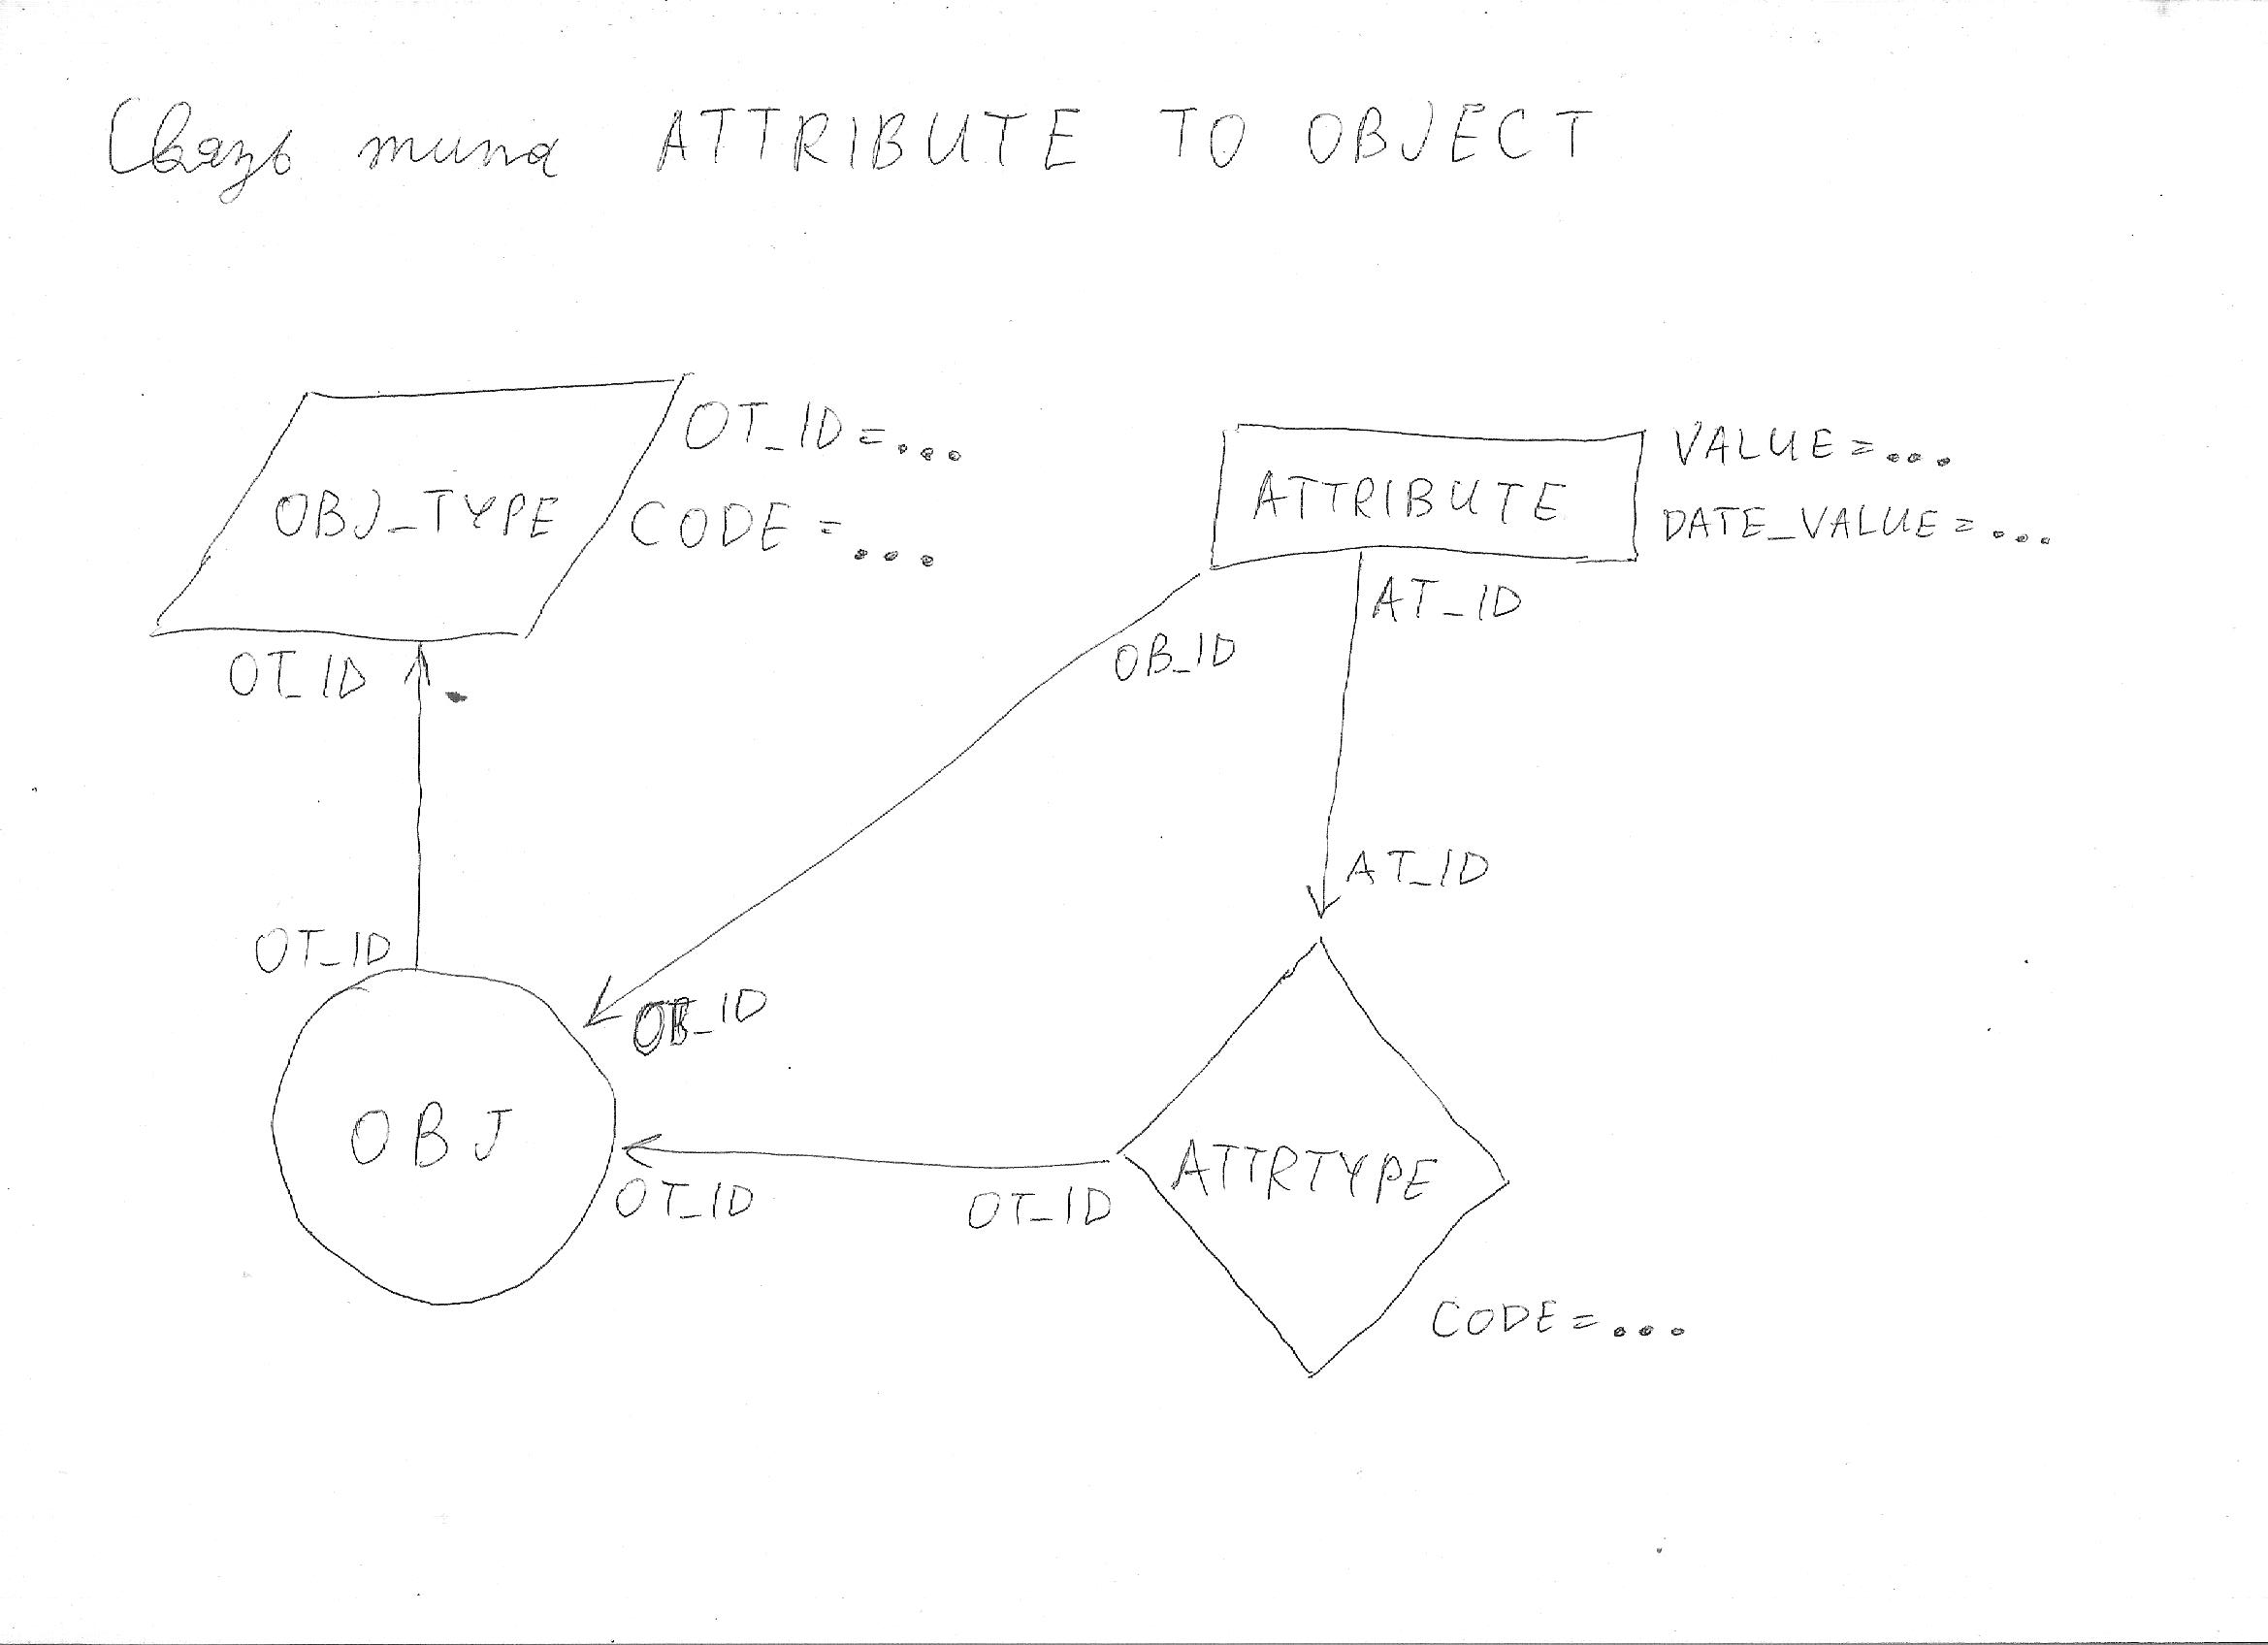 Связь типа ATTRIBUTE TO OBJECT
OT_ID = ...
OBJ_TYPE
CODE = ...
VALUE = ...
ATTRIBUTE
DATE_VALUE = ...
AT_ID
OB_ID
OT_ID
AT_ID
OT_ID
OB_ID
OBJ
ATTRTYPE
OT_ID
OT_ID
CODE = ...